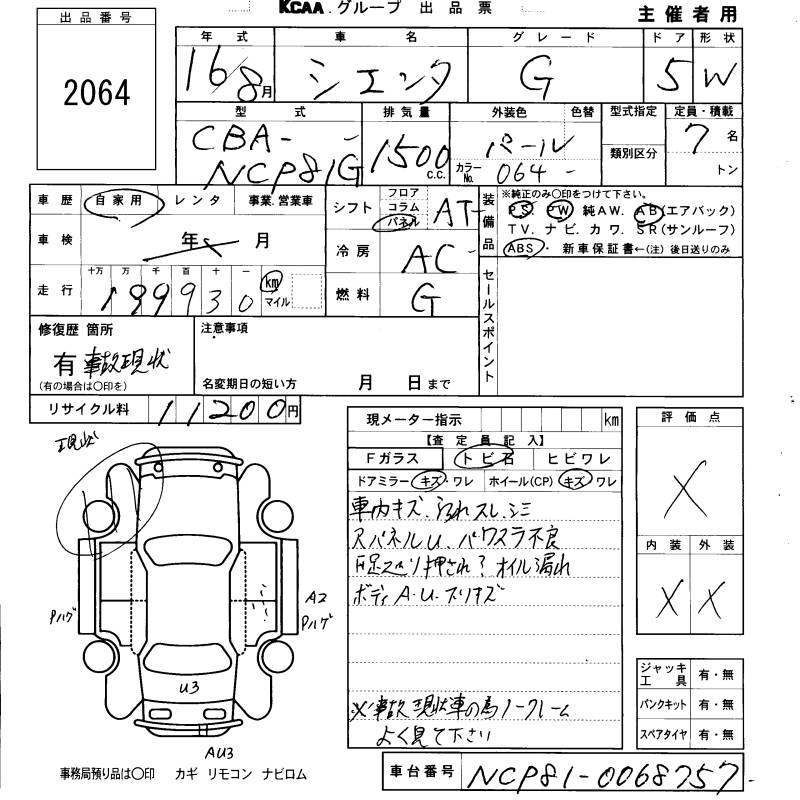 KCAA.グループ 出品票
主催者用
出品番号
2064
年式 車名 グレード ドア 形状
16/8月 シエンタ G 5 W
型式 排気量 外装色 色替 型式指定 定員・積載
CBA-
NCP81G 1500 C.C. パール
カラーNo. 064 類別区分 7名
トン
車歴 自家用 レンタ 事業.営業車
車検 年 月
走行 十万 万 千 百 十 一
199930 km マイル
シフト フロア コラム パネル AT
冷房 AC
燃料 G
装備品 ※純正のみ〇印をつけて下さい。
PS. PW. 純AW. AB(エアバック)
TV. ナビ. カワ. SR(サンルーフ)
ABS・ 新車保証書←(注) 後日送りのみ
セールスポイント
修復歴 箇所
有 事故現状
(有の場合は〇印を)
注意事項
名変期日の短い方 月 日まで
リサイクル料 11200円
現メーター指示 km
【査定員記入】
Fガラス トビ石 ヒビワレ
ドアミラー キズ・ワレ ホイール(CP) キズ ワレ
車内キズ. 汚れ スレ. シミ
パネルU. パワスラ不良
押され? オイル漏れ
ボディ A.U.スリキズ
※事故現状車の為ノークレーム
よく見て下さい
評価点
X
内装 外装
X X
ジャッキ工具 有・無
パンクキット 有・無
スペアタイヤ 有・無
車台番号 NCP81-0068757
現状
Pハゲ
A2
Pハゲ
U3
AU3
事務局預り品は〇印 カギ リモコン ナビロム